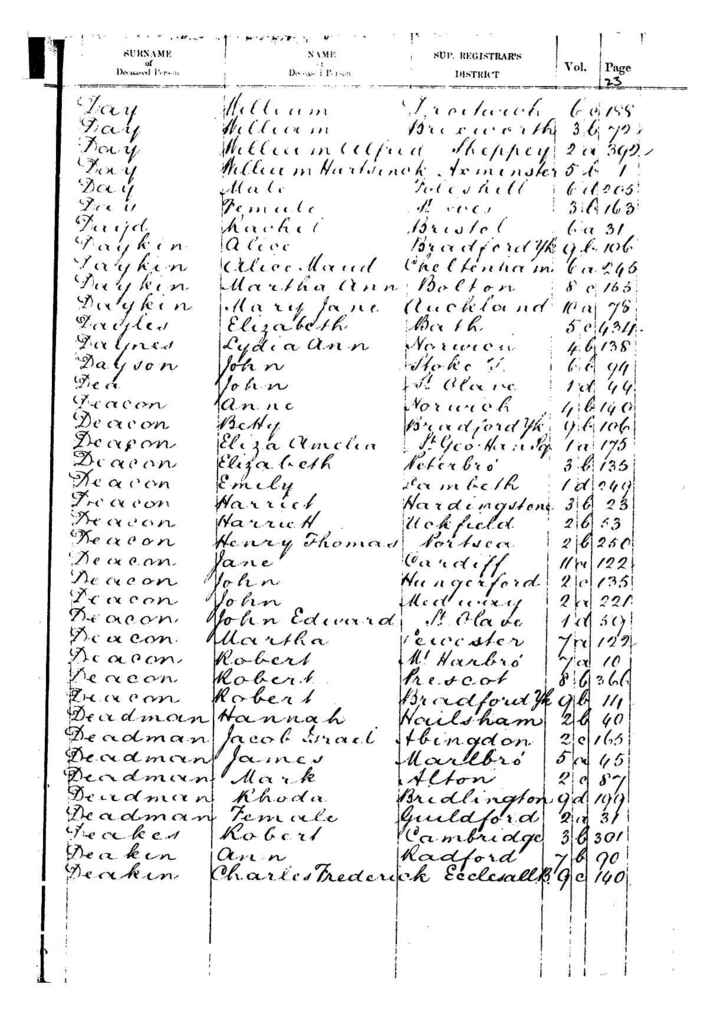 SURNAME of Deceased Person NAME of Deceased Person SUP. REGISTRAR'S DISTRICT Vol. Page
23
Day William Droitwich 6 c 188
Day William Brixworth 3 b 72
Day William Alfred Sheppey 2 a 392
Day William Hartsinck Axminster 5 b 1
Day Male Foleshill 6 d 205
Day Female St. Ives 3 b 163
Dayd Rachel Bristol 6 a 31
Daykin Alice Bradford Yk 9 b 106
Daykin Alice Maud Cheltenham 6 a 245
Daykin Martha Ann Bolton 8 c 165
Daykin Mary Jane Auckland 10 a 78
Dayles Elizabeth Bath 5 c 434
Daynes Lydia Ann Norwich 4 b 138
Dayson John Stoke T. 6 b 94
Dea John St. Olave 1 d 44
Deacon Anne Norwich 4 b 140
Deacon Betty Bradford Yk 9 b 106
Deacon Eliza Amelia St. Geo. Han. Sq 1 a 175
Deacon Elizabeth Peterbro' 3 b 135
Deacon Emily Lambeth 1 d 249
Deacon Harriet Hardingstone 3 b 23
Deacon Harriett Uckfield 2 b 53
Deacon Henry Thomas Portsea 2 b 250
Deacon Jane Cardiff 11 a 122
Deacon John Hungerford 2 c 135
Deacon John Medway 2 a 221
Deacon John Edward St. Olave 1 d 59
Deacon Martha Leicester 7 a 122
Deacon Robert Mt. Harbro' 7 a 10
Deacon Robert Prescot 8 b 366
Deacon Robert Bradford Yk 9 b 111
Deadman Hannah Hailsham 2 b 40
Deadman Jacob Israel Abingdon 2 c 165
Deadman James Marlbro' 5 a 45
Deadman Mark Alton 2 c 87
Deadman Rhoda Bridlington 9 d 199
Deadman Female Guildford 2 a 31
Deakes Robert Cambridge 3 b 301
Deakin Ann Radford 7 b 90
Deakin Charles Frederick Ecclesall B. 9 c 140